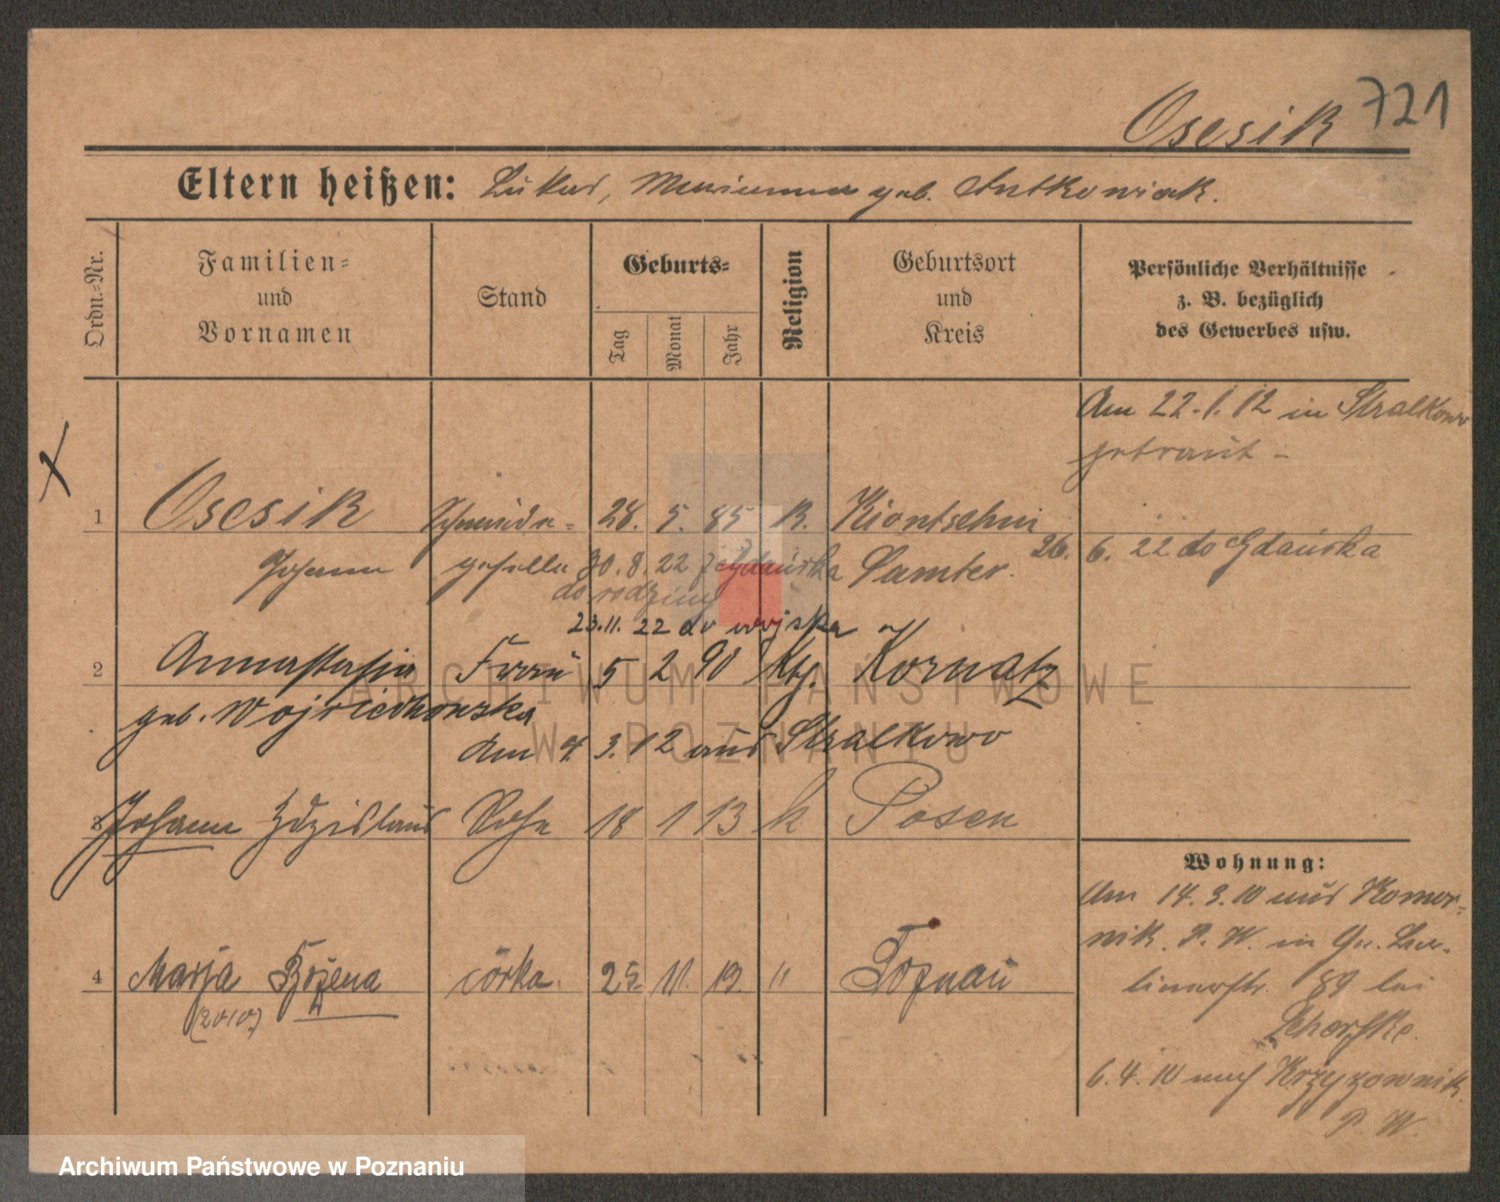 Osesik 721
Eltern heißen: Lukas, Marianna geb. Antkowiak.
Ordn.-Nr.
Familien-
und
Vornamen
Stand
Geburts-
Tag
Monat
Jahr
Religion
Geburtsort
und
Kreis
Persönliche Verhältnisse
z. B. bezüglich
des Gewerbes usw.
Am 22.1.12 in Stralkowo
getraut -
1 Osesik Schmiede- 28. 5. 85 K. Kiontschin
Johann geselle 30.8.22 z Gdańska Samter.
26. 6. 22 do Gdańska
do rodziny
23.11. 22 do wojska
2 Annastasia Frau 5 2 90 Kth. Kornatz
geb. Wojciechowska
Am 4. 3. 12 aus Stralkowo
3 Johann Zdzislaus Sohn 18 1 13 k Posen
Wohnung:
Am 14. 3. 10 aus Komor-
nik. P. W. in Gr. Ber-
linerstr. 89 bei
6. 4. 10 nach Krzyzownik
P. W.
4 Marja Bożena córka. 25. 11. 19. " Poznań
ARCHIWUM PAŃSTWOWE
W POZNANIU
Archiwum Państwowe w Poznaniu